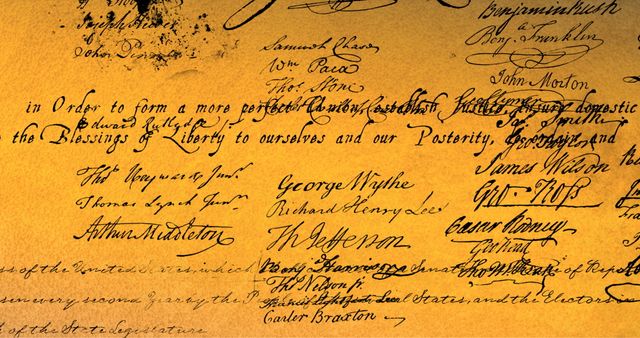 Joseph Hewes
John Penn
Samuel Chase
Wm Paca
Thos Stone
Benjamin Rush
Benja Franklin
John Morton
in Order to form a more perfect Union, establish Justice, insure domestic
Edward Rutledge
Jas Smith
the Blessings of Liberty to ourselves and our Posterity, do ordain and
Geo Taylor
James Wilson
Geo Ross
Caesar Rodney
Geo Read
Tho M:Kean
Thos Heyward Junr
Thomas Lynch Junr
Arthur Middleton
George Wythe
Richard Henry Lee
Th Jefferson
Benja Harrison
Thos Nelson jr
Francis Lightfoot Lee
Carter Braxton
of the United States, which Senate of Rep
every second Year by the P States, and the Electors in
of the State Legislature